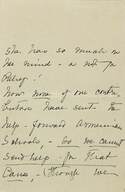 She has so much on
her mind – a not for
Now none of our contri-
butions have sent the
help – forward Armenian
Schools, – so we cannot
send help – for that
Cause, (though we